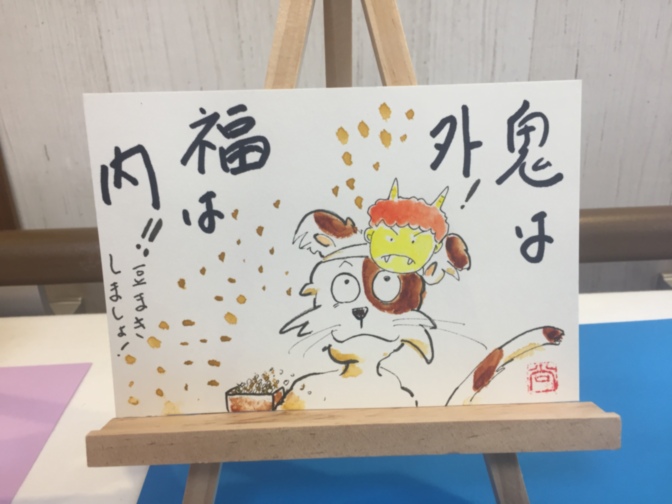 鬼は
外!
福は
内!!
豆まき
しましょ!
尚